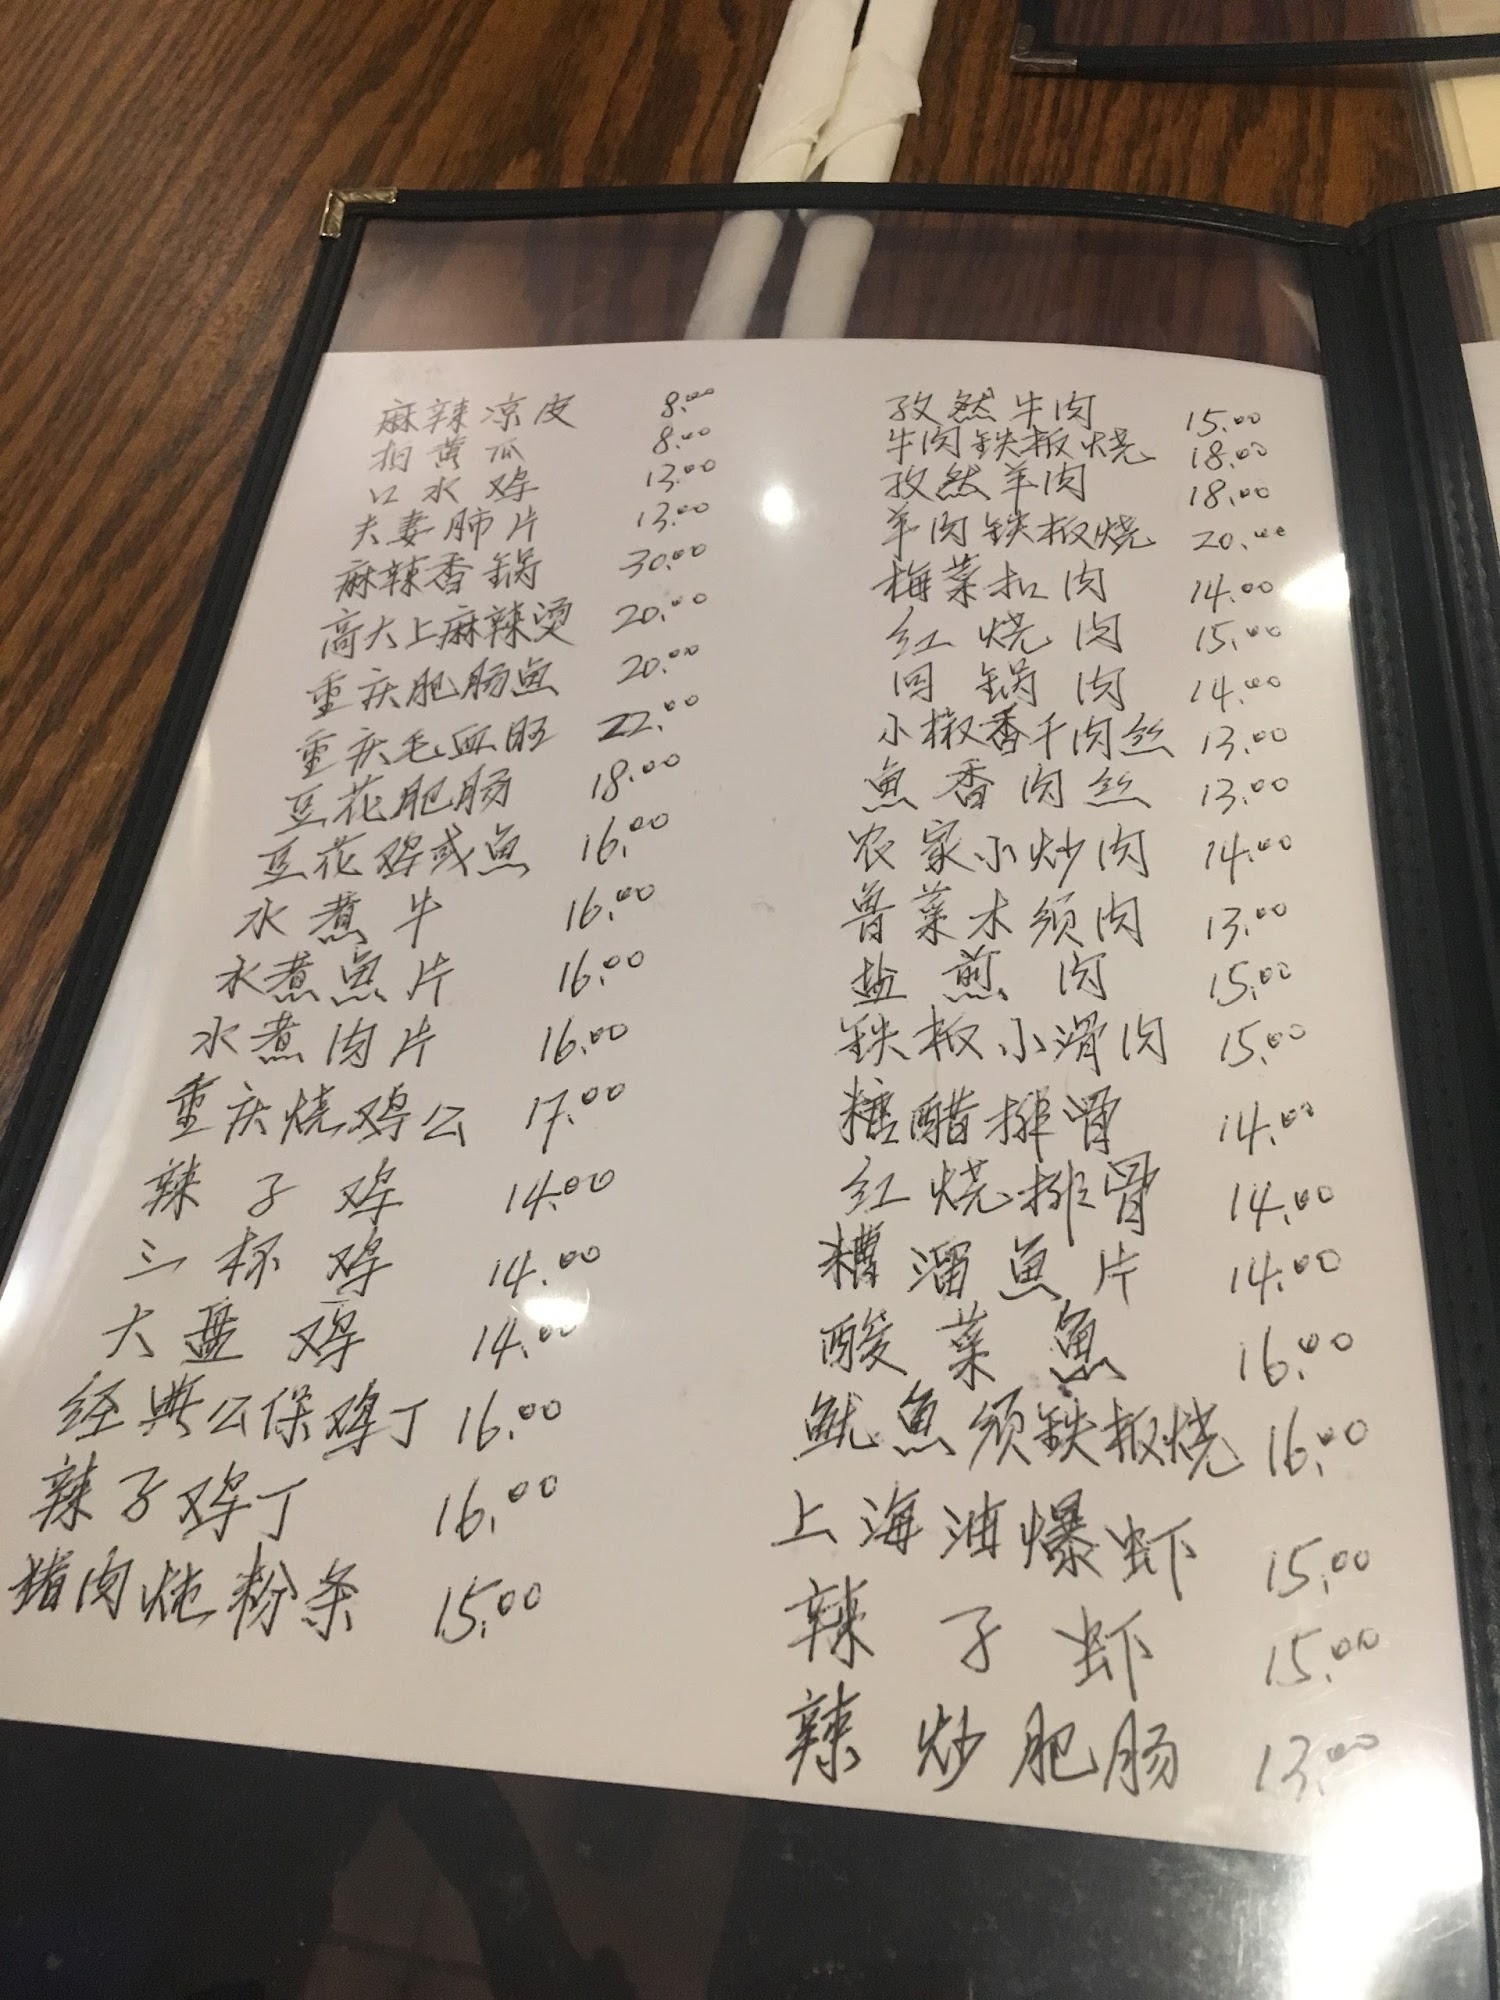 麻辣凉皮 8.00
拍黄瓜 8.00
口水鸡 13.00
夫妻肺片 13.00
麻辣香锅 30.00
高大上麻辣烫 20.00
重庆肥肠魚 20.00
重庆毛血旺 22.00
豆花肥肠 18.00
豆花鸡或魚 16.00
水煮牛 16.00
水煮魚片 16.00
水煮肉片 16.00
重庆烧鸡公 17.00
辣子鸡 14.00
三杯鸡 14.00
大盘鸡 14.00
经典公保鸡丁 16.00
辣子鸡丁 16.00
猪肉炖粉条 15.00
孜然牛肉 15.00
牛肉铁板烧 18.00
孜然羊肉 18.00
羊肉铁板烧 20.00
梅菜扣肉 14.00
红烧肉 15.00
回锅肉 14.00
小椒香干肉丝 13.00
魚香肉丝 13.00
农家小炒肉 14.00
鲁菜木须肉 13.00
盐煎肉 15.00
铁板小滑肉 15.00
糖醋排骨 14.00
红烧排骨 14.00
糟溜魚片 14.00
酸菜魚 16.00
鱿魚须铁板烧 16.00
上海油爆虾 15.00
辣子虾 15.00
辣炒肥肠 13.00